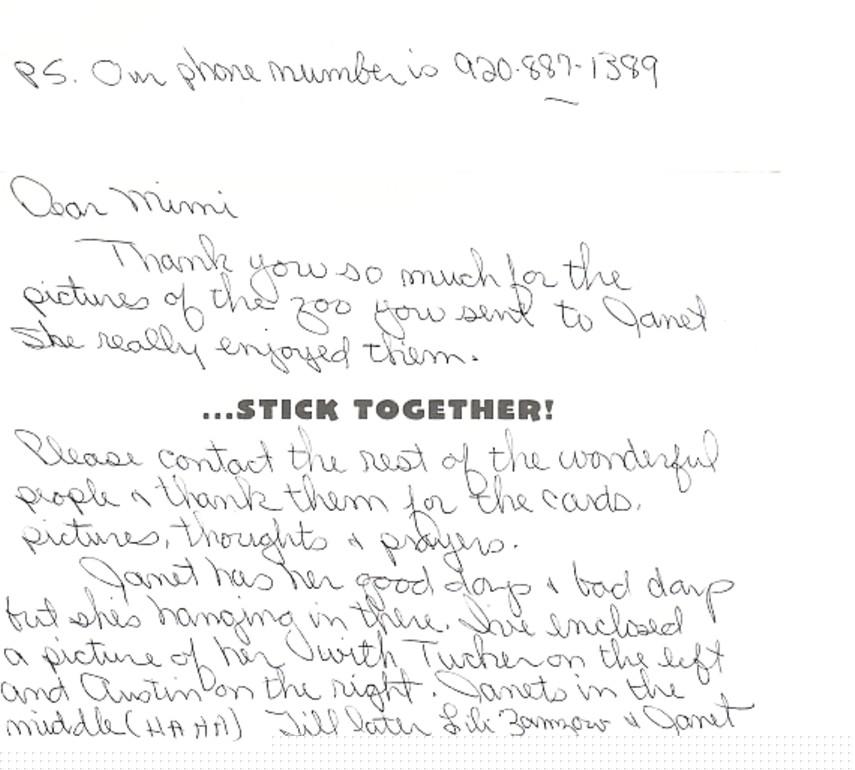 PS. Our phone number is 920-887-1389
Dear Mimi
Thank you so much for the
pictures of the zoo you sent to Janet
She really enjoyed them.
...STICK TOGETHER!
Please contact the rest of the wonderful
people & thank them for the cards,
pictures, thoughts & prayers.
Janet has her good days & bad days
but she's hanging in there. I've enclosed
a picture of her with Tucker on the left
and Austin on the right. Janets in the
middle (HA HA) Till later Lili & Janet